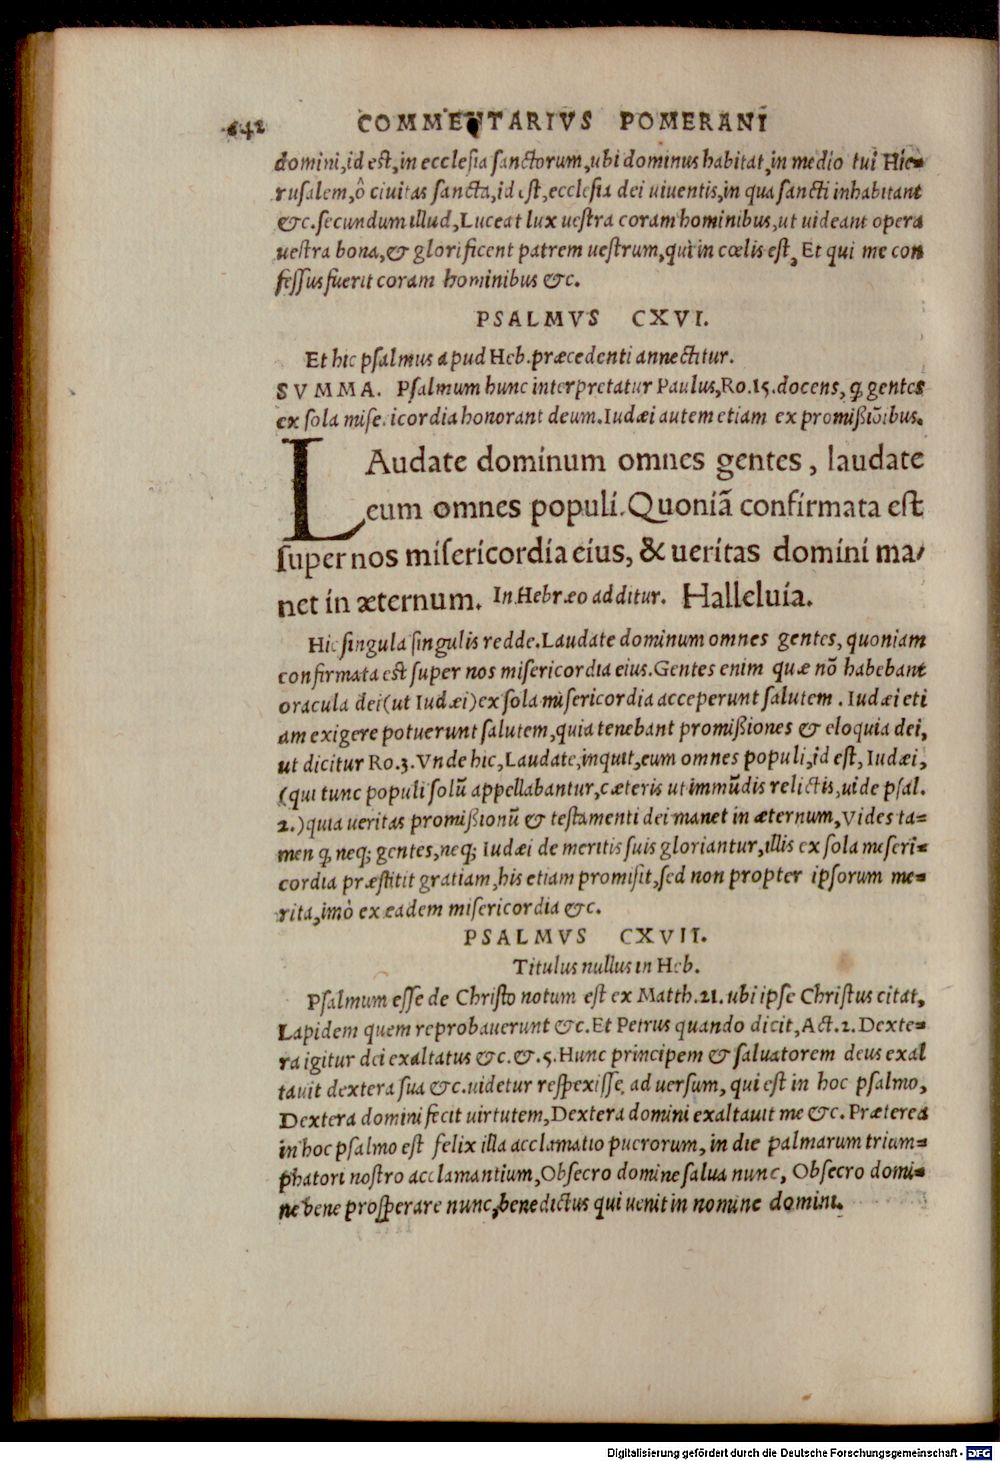 642 COMMENTARIVS POMERANI
domini, id est, in ecclesia sanctorum, ubi dominus habitat, in medio tui Hie=
rusalem, ô ciuitas sancta, id est, ecclesia dei uiuentis, in qua sancti inhabitant
&c. secundum illud, Luceat lux uestra coram hominibus, ut uideant opera
uestra bona, & glorificent patrem uestrum, qui in cœlis est, Et qui me con
fessus fuerit coram hominibus &c.
PSALMVS CXVI.
Et hic psalmus apud Heb. præcedenti annectitur.
SVMMA. Psalmum hunc interpretatur Paulus, Ro. 15. docens, ꝙ gentes
ex sola misericordia honorant deum. Iudæi autem etiam ex promißiōibus.
LAudate dominum omnes gentes, laudate
eum omnes populi. Quoniã confirmata est
super nos misericordia eius, & ueritas domini ma/
net in æternum. In Hebræo additur. Halleluia.
Hic singula singulis redde. Laudate dominum omnes gentes, quoniam
confirmata est super nos misericordia eius. Gentes enim quæ nō habebant
oracula dei (ut Iudæi) ex sola misericordia acceperunt salutem. Iudæi eti
am exigere potuerunt salutem, quia tenebant promißiones & eloquia dei,
ut dicitur Ro. 3. Vnde hic, Laudate, inquit, eum omnes populi, id est, Iudæi,
(qui tunc populi solū appellabantur, cæteris ut immūdis relictis, uide psal.
2.) quia ueritas promißionū & testamenti dei manet in æternum, Vides ta=
men ꝙ neq; gentes, neq; Iudæi de meritis suis gloriantur, illis ex sola miseri=
cordia præstitit gratiam, his etiam promisit, sed non propter ipsorum me=
rita, imò ex eadem misericordia &c.
PSALMVS CXVII.
Titulus nullus in Heb.
Psalmum esse de Christo notum est ex Matth. 21. ubi ipse Christus citat,
Lapidem quem reprobauerunt &c. Et Petrus quando dicit, Act. 2. Dexte=
ra igitur dei exaltatus &c. &. 5. Hunc principem & saluatorem deus exal
tauit dextera sua &c. uidetur respexisse, ad uersum, qui est in hoc psalmo,
Dextera domini fecit uirtutem, Dextera domini exaltauit me &c. Præterea
in hoc psalmo est felix illa acclamatio puerorum, in die palmarum trium=
phatori nostro acclamantium, Obsecro domine salua nunc, Obsecro domi=
ne bene prosperare nunc, benedictus qui uenit in nomine domini.
Digitalisierung gefördert durch die Deutsche Forschungsgemeinschaft - DFG